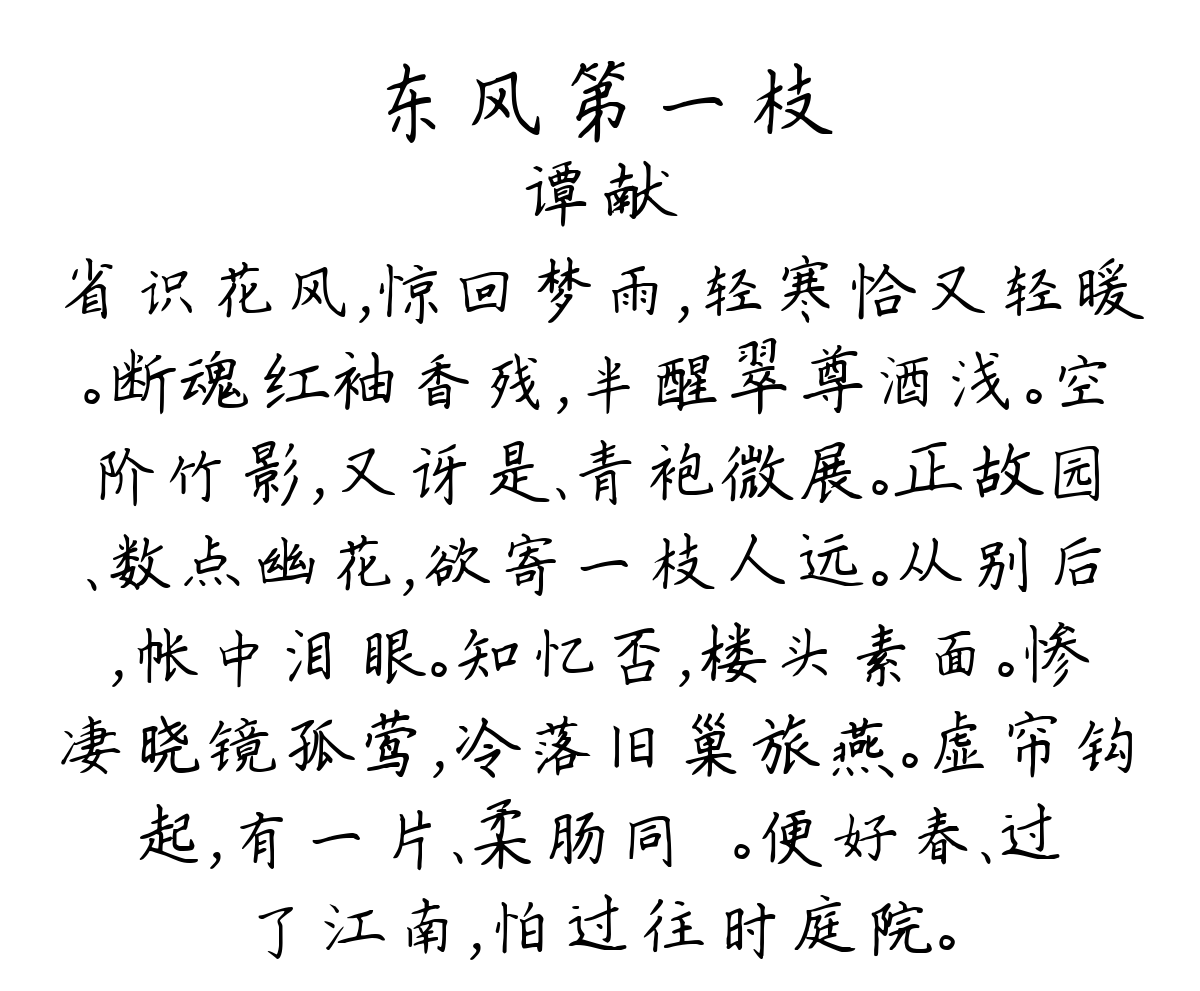 东风第一枝
谭献
省识花风,惊回梦雨,轻寒恰又轻暖
。断魂红袖香残,半醒翠尊酒浅。空
阶竹影,又讶是、青袍微展。正故园
、数点幽花,欲寄一枝人远。从别后
,帐中泪眼。知忆否,楼头素面。惨
凄晓镜孤莺,冷落旧巢旅燕。虚帘钩
起,有一片、柔肠同 。便好春、过
了江南,怕过往时庭院。